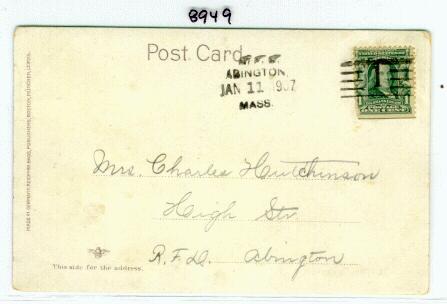 8949
Post Card
ABINGTON,
JAN 11 1907
MASS.
Mrs. Charles Hutchinson
High Str.
R.F.D. Abington
This side for the address.
ONE CENT